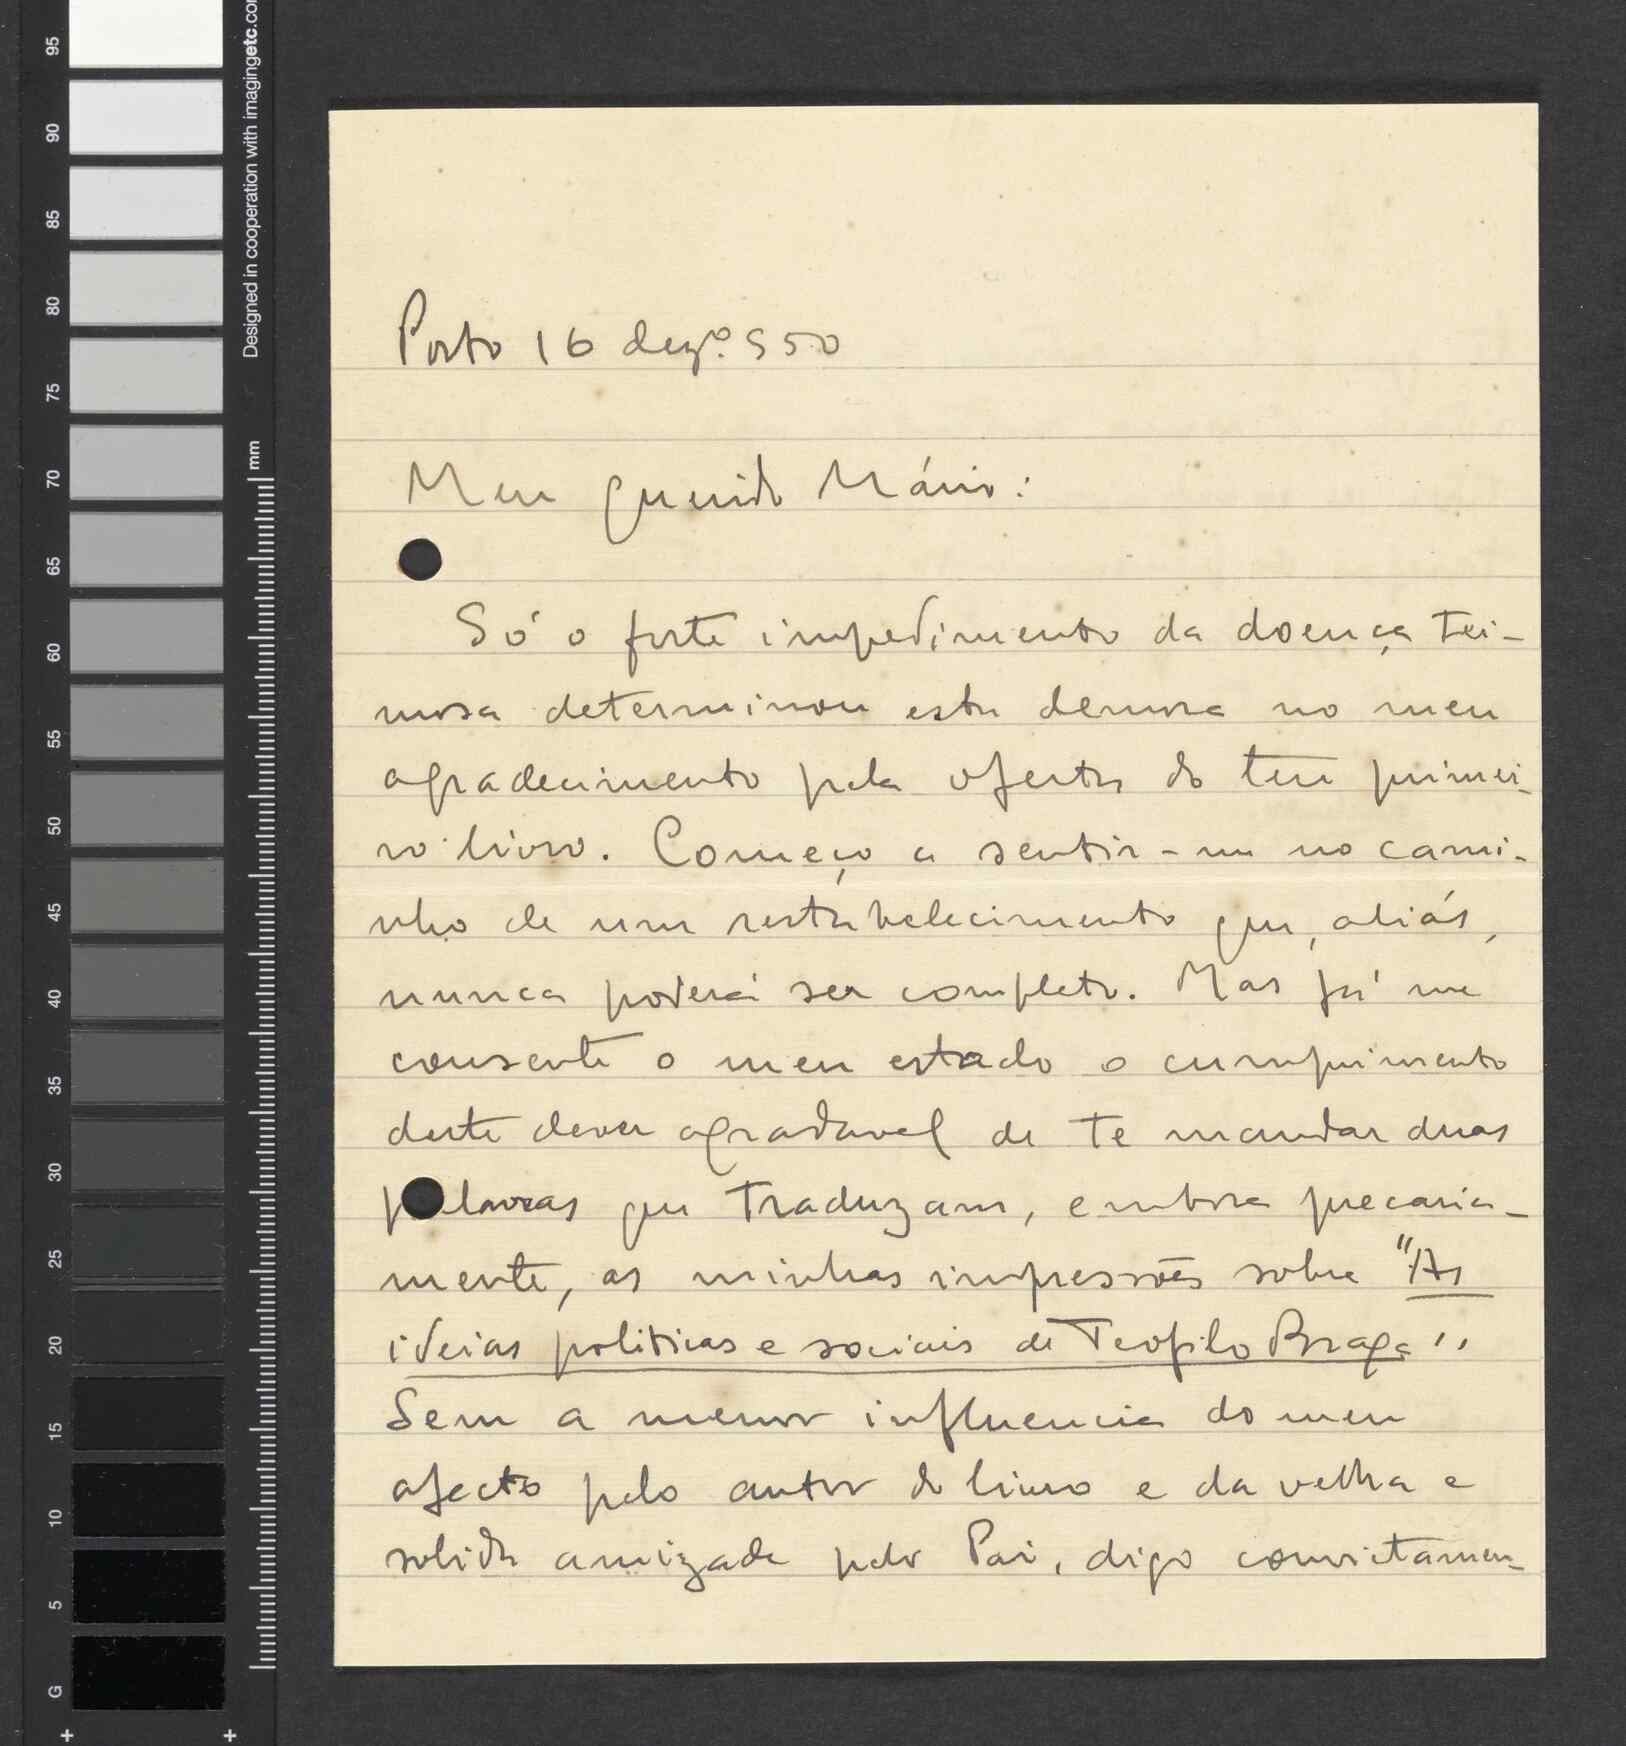 Porto 16 dezº. 950
Meu querido Mário:
Só o forte impedimento da doença tei-
mosa determinou esta demora no meu
agradecimento pela oferta do teu primei-
ro livro. Começo a sentir-me no cami-
nho de um restabelecimento que, aliás,
nunca poderá ser completo. Mas já me
consente o meu estado o cumprimento
deste dever agradavel de te mandar duas
palavras que traduzam, embora precaria-
mente, as minhas impressões sobre "As
ideias politicas e sociais de Teofilo Braga".
Sem a menor influencia do meu
afecto pelo autor do livro e da velha e
solida amizade pelo Pai, digo convictamen-
95
90
85
80
75
70
65
60
55
50
45
40
35
30
25
20
15
10
5
G
mm
Designed in cooperation with imagingetc.co